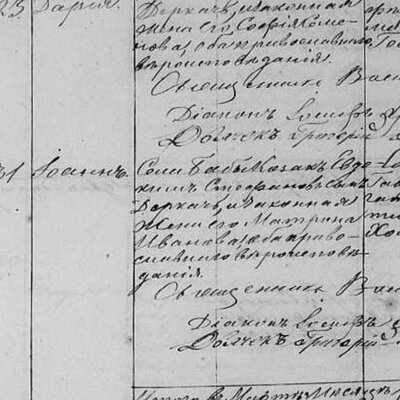 23 Дарія.
Деркачъ, и законная
жена его Софія
нова, оба православнаго
вѣроисповѣданія.
Священникъ Вас
Діаконъ Іосифъ
Дьячекъ Григорій
31 Іоаннъ.
Села Бабы Козакъ Евдо-
кимъ Стефановъ сынъ
Деркачъ, и законная
жена его Матрона
Иванова, оба право-
славнаго вѣроисповѣ-
данія.
Священникъ Вас
Діаконъ Іосифъ
Дьячекъ Григорій
Мартѣ Мѣсяцѣ